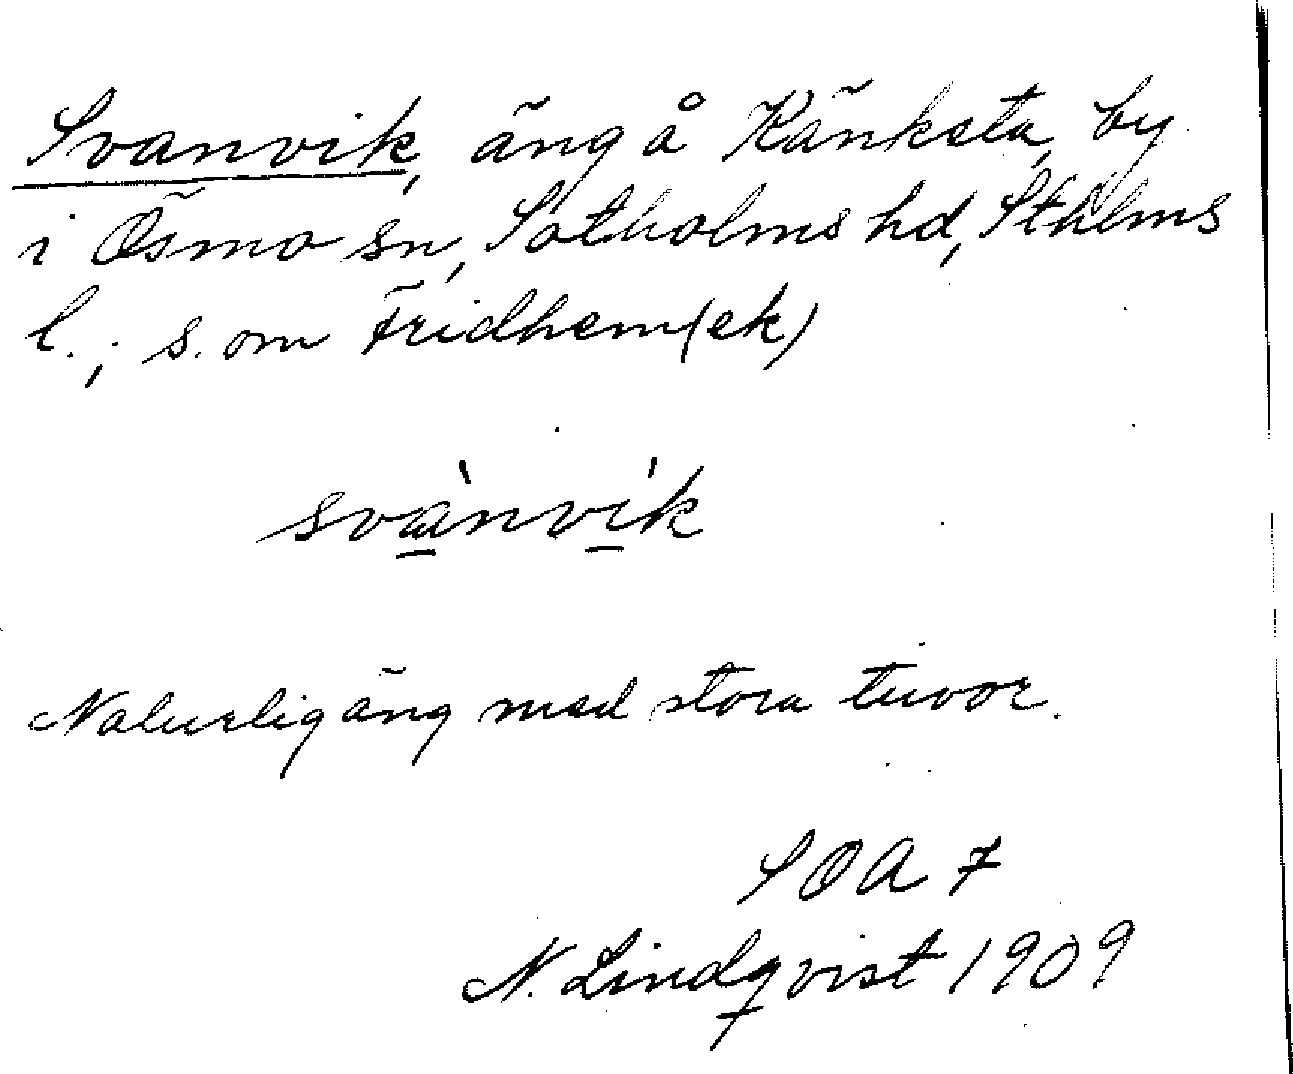 Svanvik, äng å Känksta, by
i Ösmo sn, Sotholms hd, Sthlms
l.; s. om Fridhem (ek)
svànvík
Naturlig äng med stora tuvor.
SOA 7
N. Lindqvist 1909